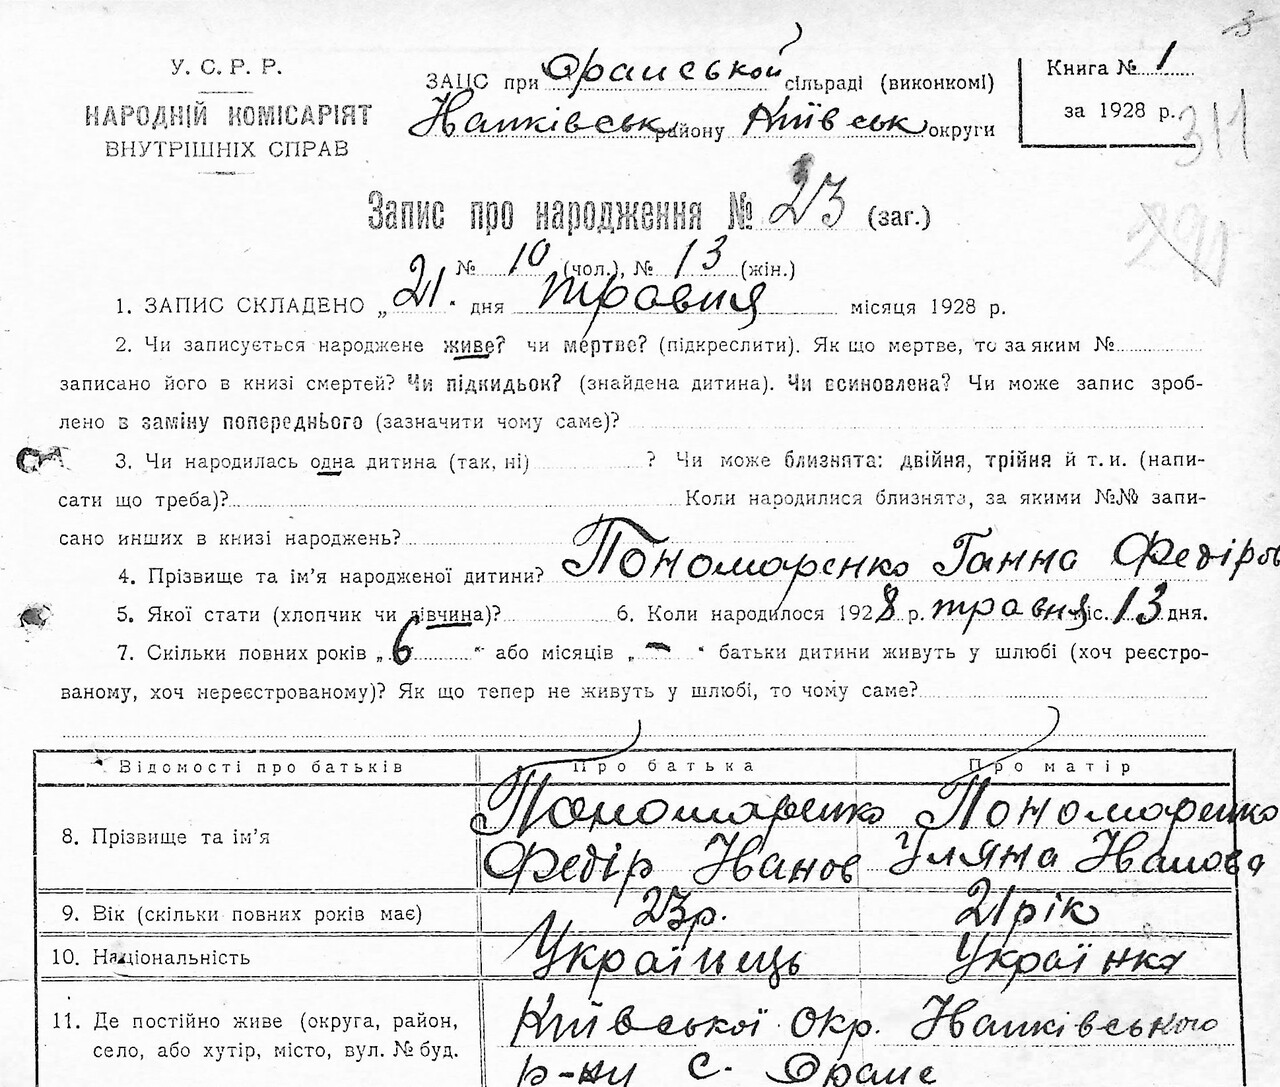 У. С. Р. Р.
НАРОДНІЙ КОМІСАРІЯТ
ВНУТРІШНІХ СПРАВ
ЗАЦС при Оранській сільраді (виконкомі)
Іванківськ району Київськ округи
Книга № 1
за 1928 р.
311
291
Запис про народження № 23 (заг.)
№ 10 (чол.), № 13 (жін.)
1. ЗАПИС СКЛАДЕНО „21" дня травня місяця 1928 р.
2. Чи записується народжене живе? чи мертве? (підкреслити). Як що мертве, то за яким №
записано його в книзі смертей? Чи підкидьок? (знайдена дитина). Чи всиновлена? Чи може запис зроб-
лено в заміну попереднього (зазначити чому саме)?
3. Чи народилась одна дитина (так, ні) ? Чи може близнята: двійня, трійня й т. и. (напи-
сати що треба)? Коли народилися близнята, за якими №№ запи-
сано инших в книзі народжень?
4. Прізвище та ім'я народженої дитини? Пономаренко Ганна Федіров
5. Якої стати (хлопчик чи дівчина)? 6. Коли народилося 1928 р. травня міс. 13 дня.
7. Скільки повних років „6" або місяців „—" батьки дитини живуть у шлюбі (хоч реєстро-
ваному, хоч нереєстрованому)? Як що тепер не живуть у шлюбі, то чому саме?
Відомості про батьків Про батька Про матір
8. Прізвище та ім'я Пономаренко Федір Іванов Пономаренко Уляна Іванова
9. Вік (скільки повних років має) 23р. 21 рік
10. Національність Українець Українка
11. Де постійно живе (округа, район, Київської окр. Іванківського
село, або хутір, місто, вул. № буд. р-ну с. Оране